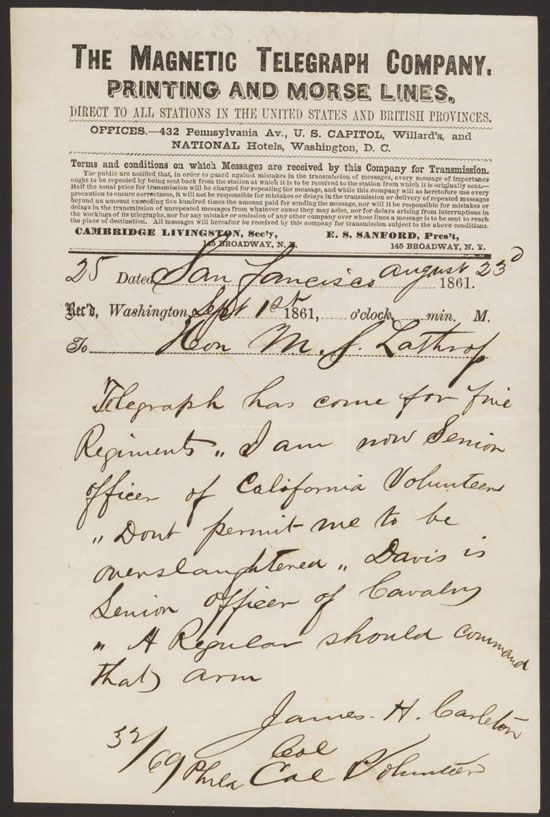 THE MAGNETIC TELEGRAPH COMPANY.
PRINTING AND MORSE LINES,
DIRECT TO ALL STATIONS IN THE UNITED STATES AND BRITISH PROVINCES.
OFFICES.—432 Pennsylvania Av., U. S. CAPITOL, Willard's, and
NATIONAL Hotels, Washington, D. C.
Terms and conditions on which Messages are received by this Company for Transmission.
The public are notified that, in order to guard against mistakes in the transmission of messages, every message of importance
ought to be repeated by being sent back from the station at which it is to be received to the station from which it is originally sent—
Half the usual price for transmission will be charged for repeating the message, and while this company will as heretofore use every
precaution to ensure correctness, it will not be responsible for mistakes or delays in the transmission or delivery of repeated messages
beyond an amount exceeding five hundred times the amount paid for sending the message, nor will it be responsible for mistakes or
delays in the transmission of unrepeated messages from whatever cause they may arise, nor for delays arising from interruptions in
the workings of its telegraphs, nor for any mistake or omission of any other company over whose lines a message is to be sent to reach
the place of destination. All messages will hereafter be received by this company for transmission subject to the above conditions.
CAMBRIDGE LIVINGSTON, Sec'y, E. S. SANFORD, Pres't,
145 BROADWAY, N. Y. 145 BROADWAY, N. Y.
25 Dated San Francisco august 23d 1861.
Rec'd, Washington, Sept 1st 1861, o'clock, min. M.
To Hon M. S. Lathrop
Telegraph has come for five
Regiments „ I am now Senior
officer of California Volunteers
„ Dont permit me to be
overslaughtered „ Davis is
Senior officer of Cavalry
„ A Regular should command
that arm
James. H. Carleton
Col
32/69 Phila Cal Volunteer